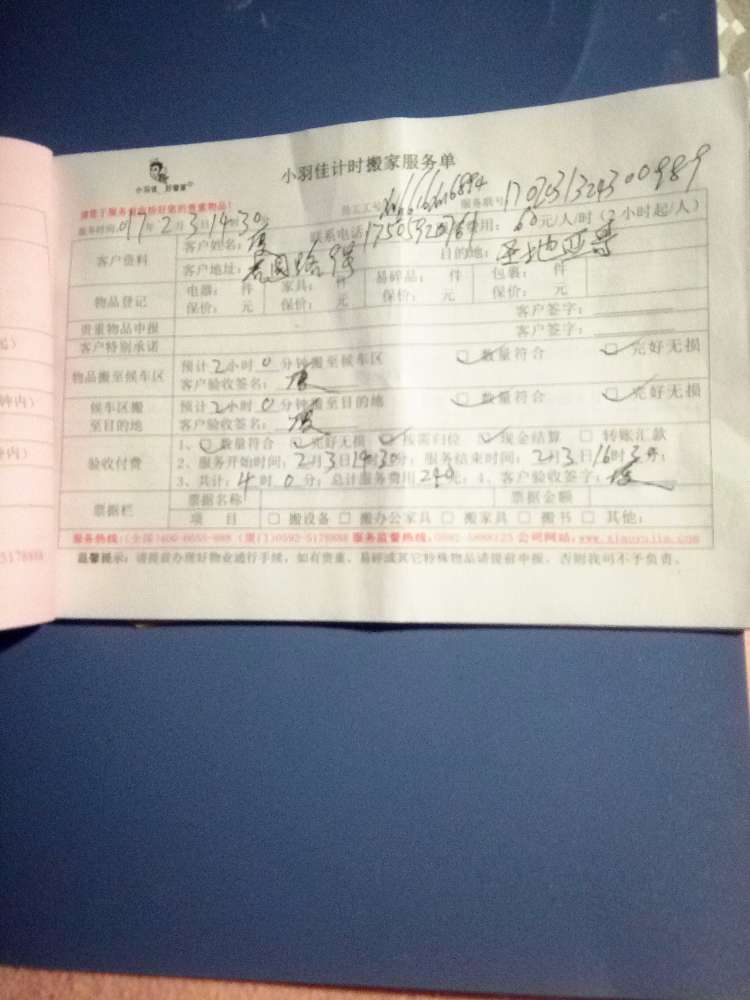 小羽佳 好管家
小羽佳计时搬家服务单
请您于服务前清标好您的贵重物品!
员工工号 服务账号:170231324300989
服务时间 017年2月3日14时30
客户资料 客户姓名: 联系电话 费用:60元/人/时(2小时起/人)
客户地址: 目的地:圣地亚哥
物品登记 电器: 件 家具: 件 易碎品: 件 包裹: 件
保价: 元 保价: 元 保价: 元 保价: 元
贵重物品申报 客户签字:
客户特别承诺 客户签字:
物品搬至候车区 预计2小时0分钟搬至候车区 数量符合 完好无损
客户验收签名:
候车区搬至目的地 预计2小时0分钟搬至目的地 数量符合 完好无损
客户验收签名:
验收付费 1、数量符合 完好无损 按需归位 现金结算 转账汇款
2、服务开始时间:2月3日14时30分;服务结束时间:2月3日16时3分;
3、共计:4时0分;总计服务费用240元;4、客户验收签字:
票据栏 票据名称 票据金额
项 目 搬设备 搬办公家具 搬家具 搬书 其他:
服务热线:(全国)400-0055-988 (厦门)0592-5178888 服务监督热线:0592-5888123 公司网站:www.xiaoyujia.com
温馨提示:请提前办理好物业通行手续,如有贵重、易碎或其它特殊物品请提前申报,否则我司不予负责。